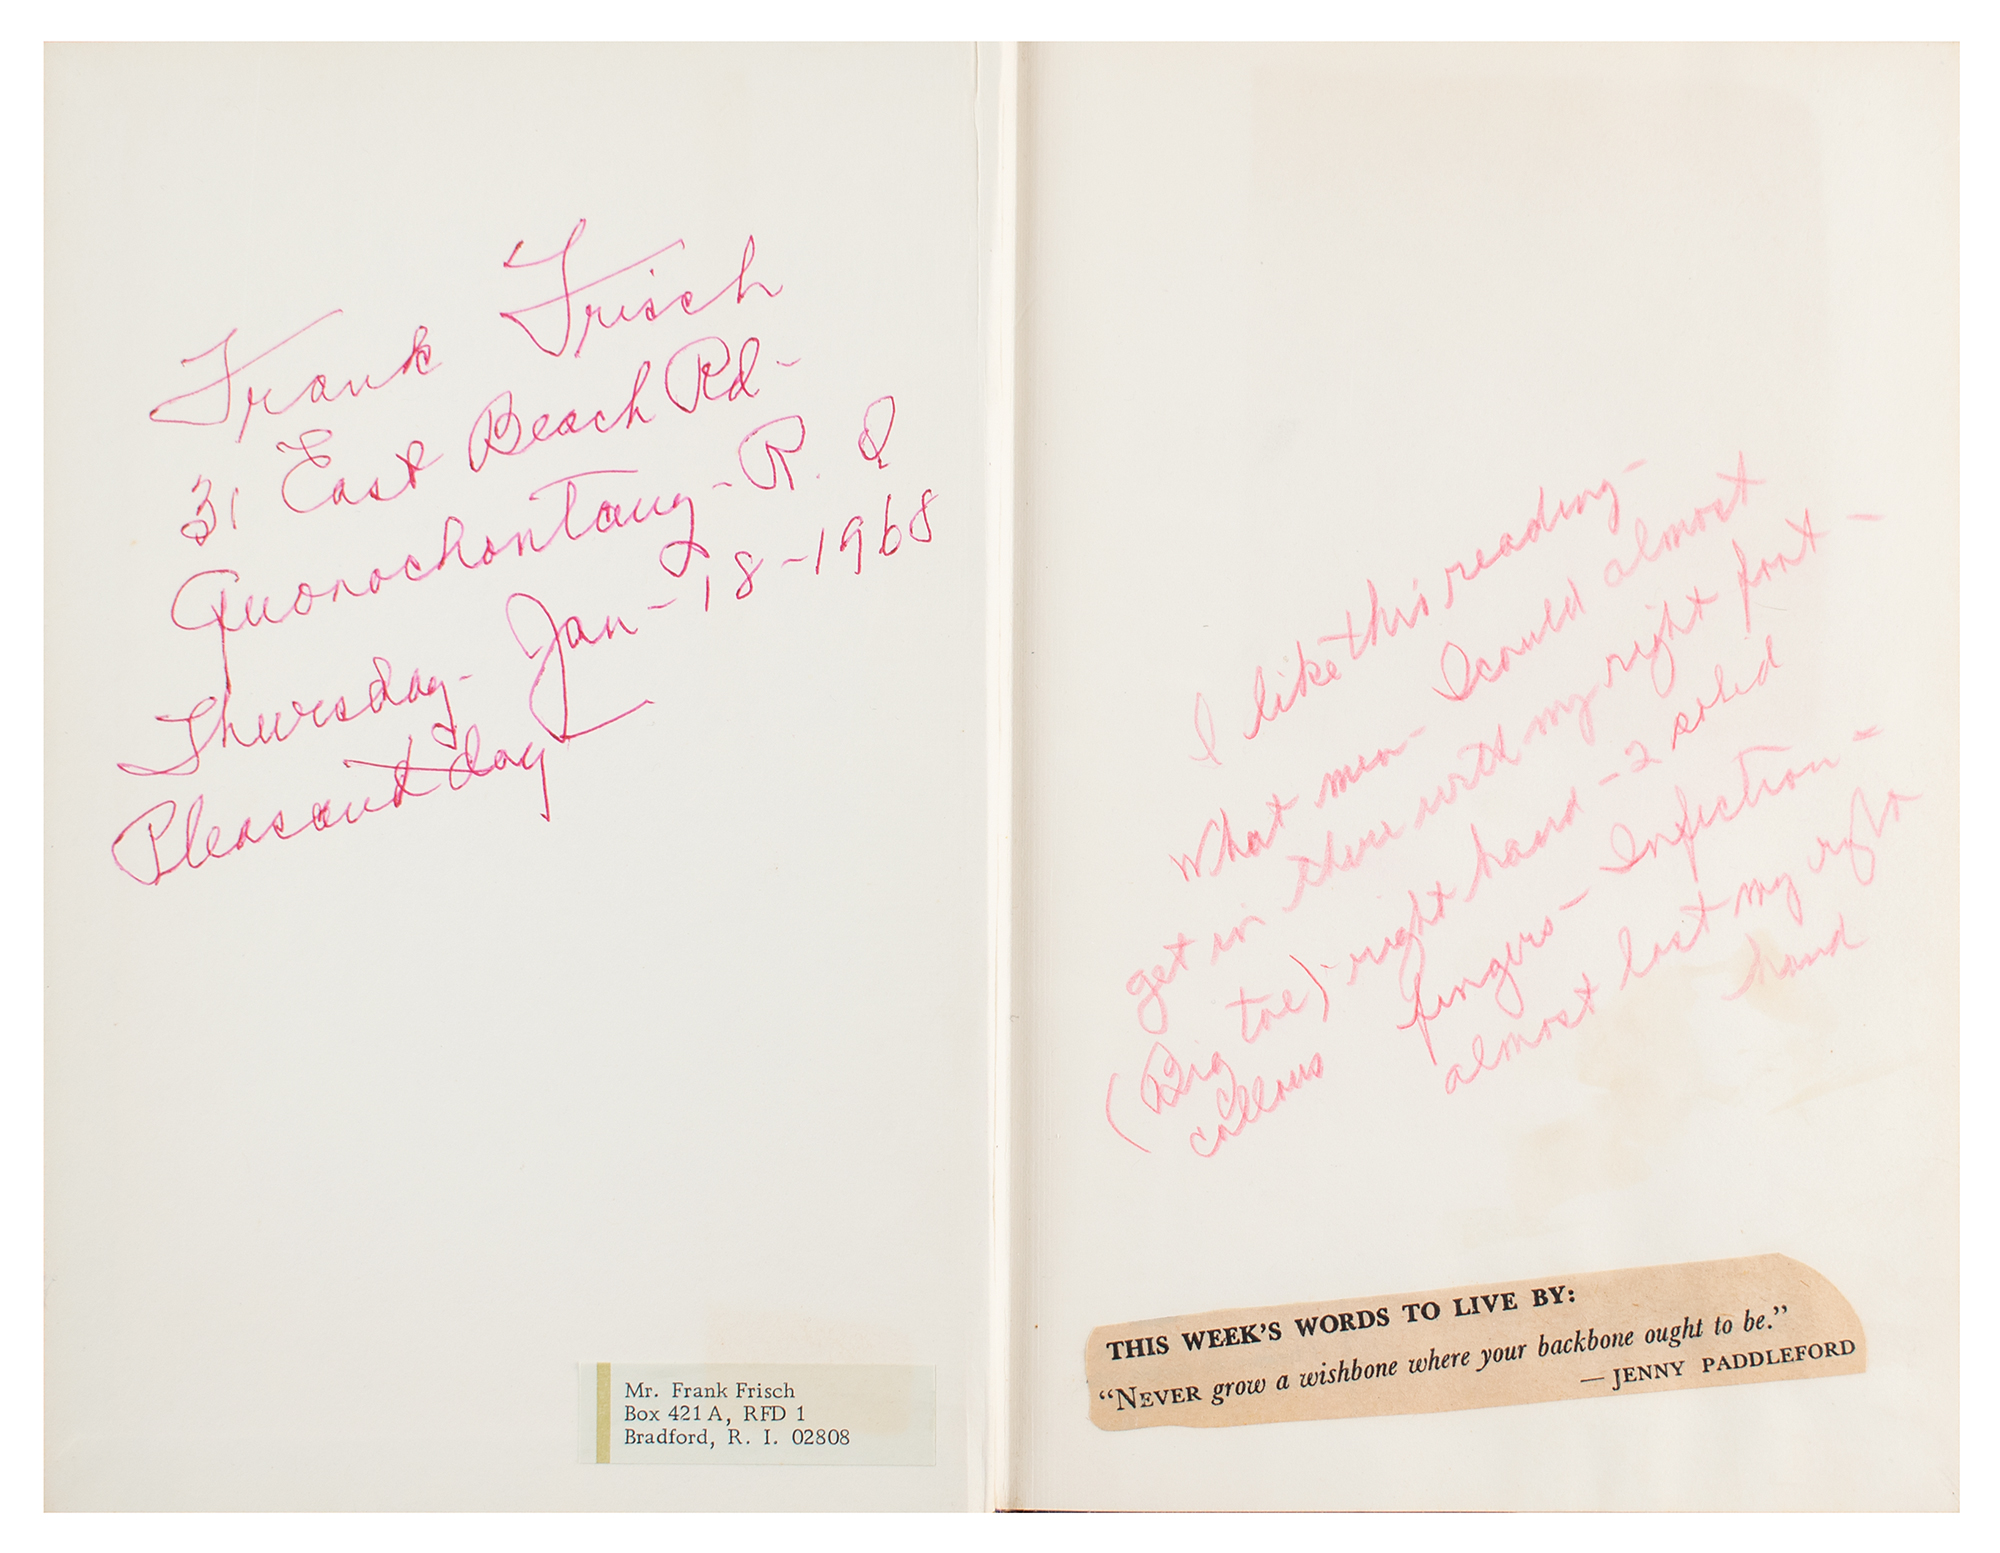 Frank Frisch
31 East Beach Rd-
Quonochontaug - R. I
Thursday - Jan - 18 - 1968
Pleasant day
Mr. Frank Frisch
Box 421 A, RFD 1
Bradford, R. I. 02808
I like this reading -
What men - I could almost
get in there with my right foot -
(Big toe) - right hand - 2 solid
callous fingers - Infection -
almost lost my right
hand
THIS WEEK'S WORDS TO LIVE BY:
"NEVER grow a wishbone where your backbone ought to be."
— JENNY PADDLEFORD